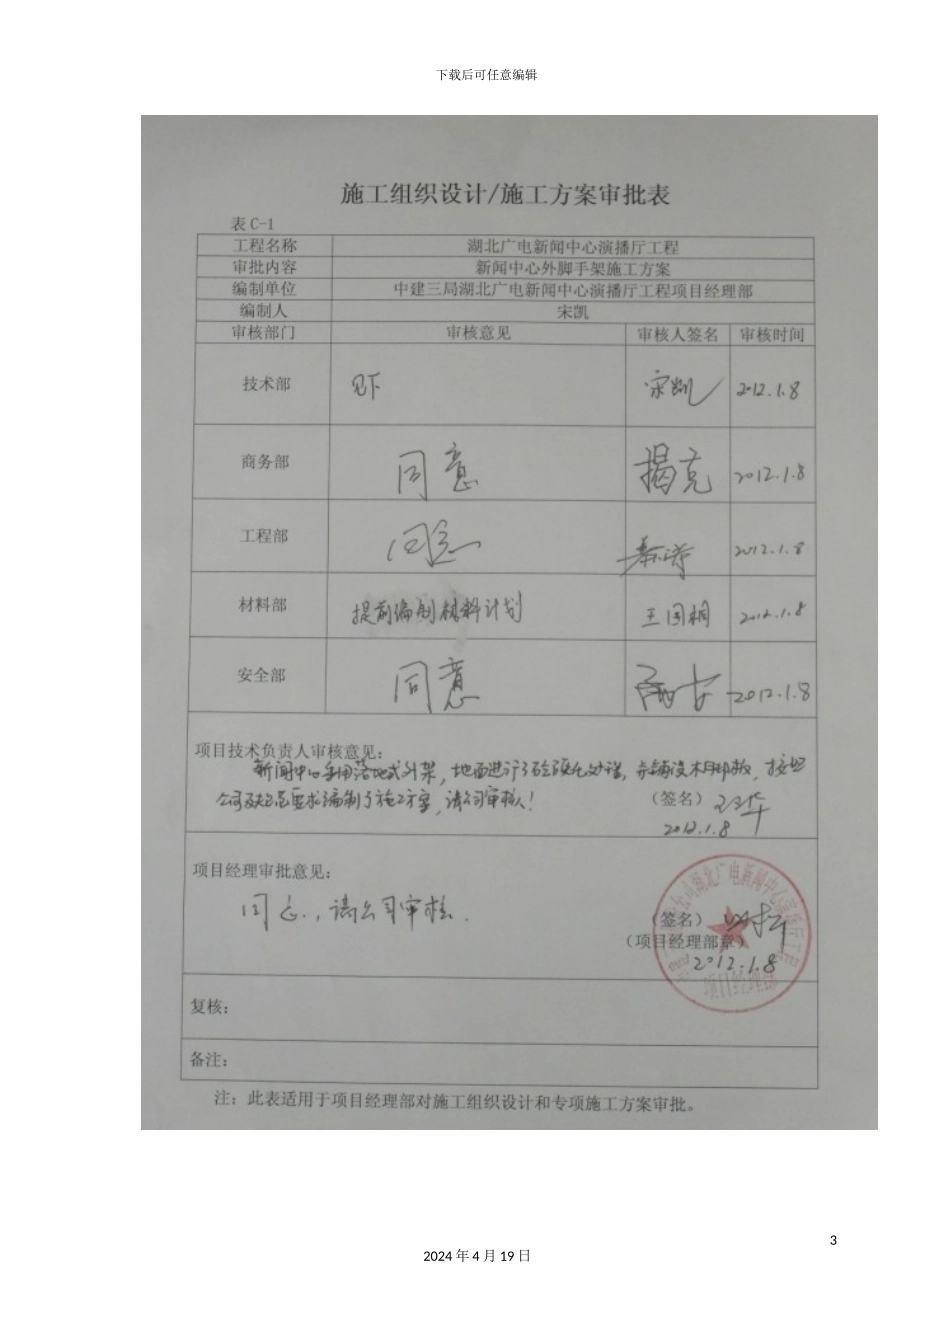 下载后可任意编辑
施工组织设计/施工方案审批表
表 C-1
工程名称 湖北广电新闻中心演播厅工程
审批内容 新闻中心外脚手架施工方案
编制单位 中建三局湖北广电新闻中心演播厅工程项目经理部
编制人 宋凯
审核部门 审核意见 审核人签名 审核时间
技术部 见下 宋凯 2012.1.8
商务部 同意 揭克 2012.1.8
工程部 同意 2012.1.8
材料部 提前编制材料计划 王国桐 2012.1.8
安全部 同意 2012.1.8
项目技术负责人审核意见：
新闻中心采用落地式外架，地面进行了砼硬化处理，并铺设木脚手板，按照
公司及规范要求编制了施工方案，请公司审核！
（签名）
2012.1.8
项目经理审批意见：
同意，请公司审核.
（签名）
（项目经理部章）
2012.1.8
湖北广电新闻中心演播厅工程
项目经理部
复核：
备注：
注：此表适用于项目经理部对施工组织设计和专项施工方案审批。
3
2024 年 4 月 19 日